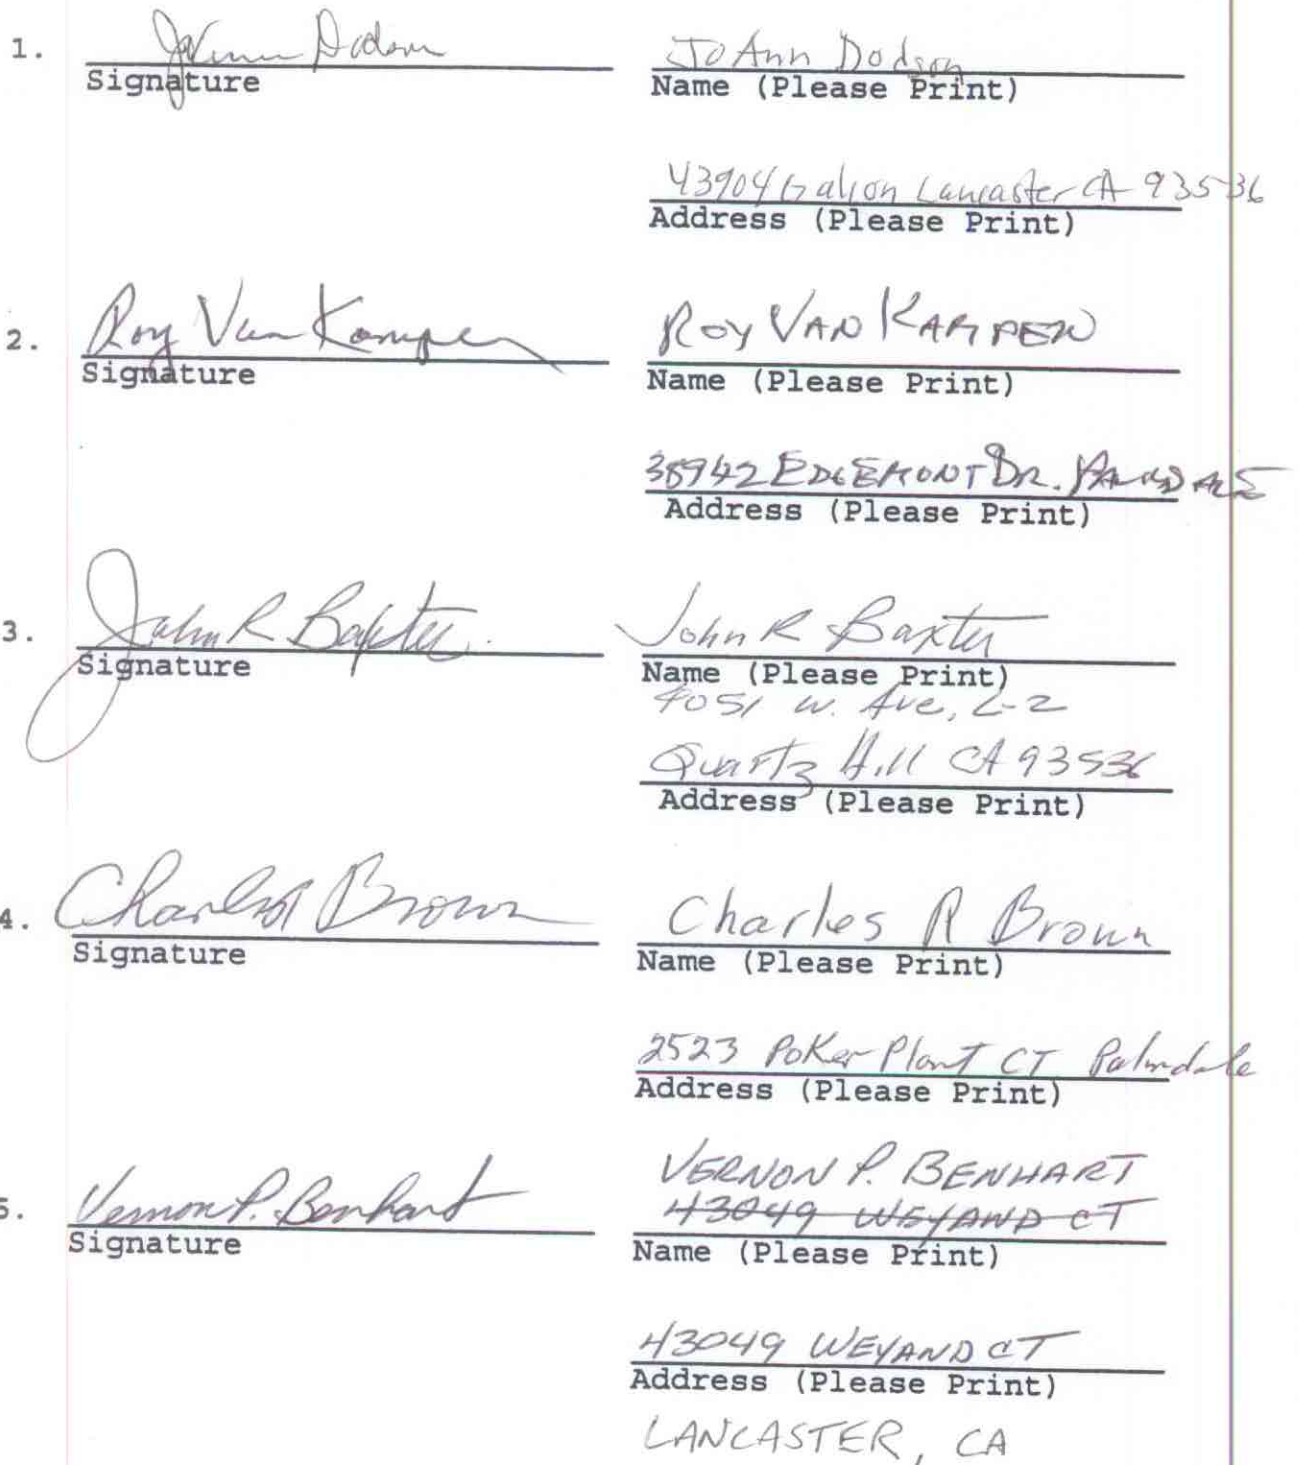 1. JoAnn Dodson JoAnn Dodson
Signature Name (Please Print)
43904 Galion Lancaster CA 93536
Address (Please Print)
2. Roy Van Kampen ROY VAN KAMPEN
Signature Name (Please Print)
38942 EDGEMONT DR. PALMDALE
Address (Please Print)
3. John R Baxter John R Baxter
Signature Name (Please Print)
4051 W. Ave, L-2
Quartz Hill CA 93536
Address (Please Print)
4. Charles R Brown Charles R Brown
Signature Name (Please Print)
2523 Poker Plant CT Palmdale
Address (Please Print)
VERNON P. BENHART
5. Vernon P. Benhart 43049 WEYAND CT
Signature Name (Please Print)
43049 WEYAND CT
Address (Please Print)
LANCASTER, CA